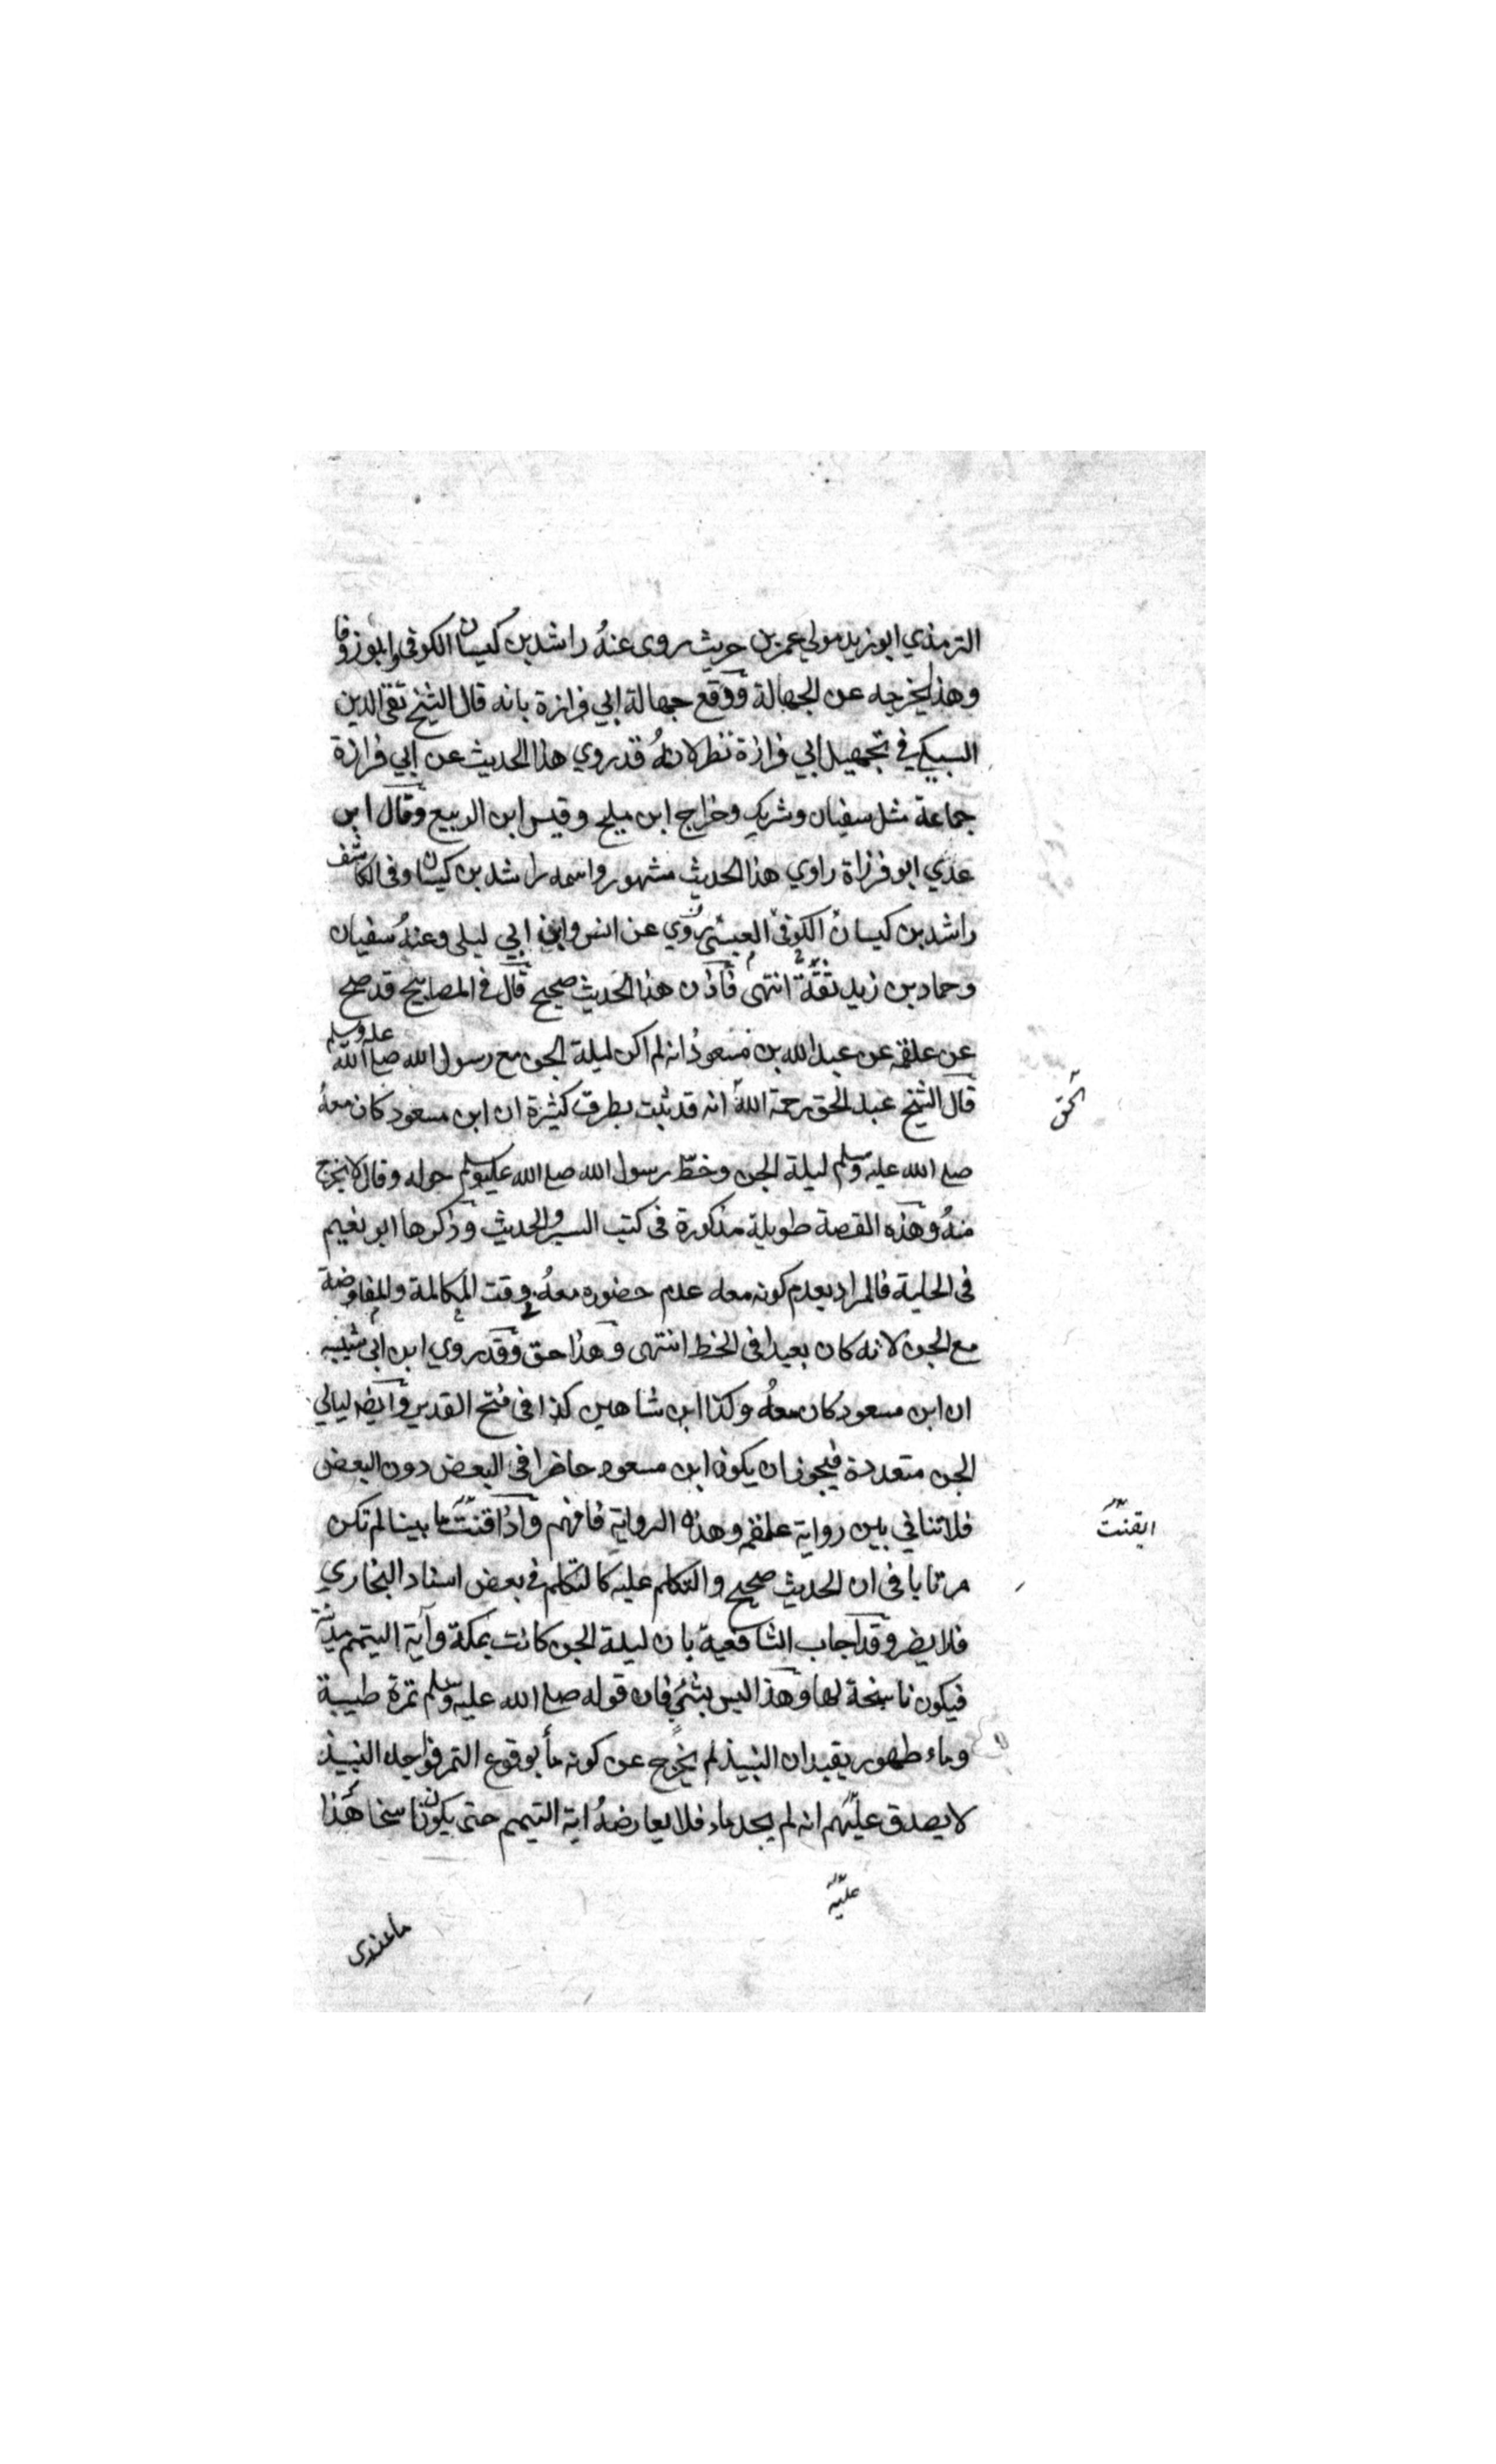 الترمذي ابو زيد مولي عمر بن حريث روى عنهُ راشد بن كيسان الكوفي وابو زوقا
وهذا يخرجه عن الجهالة ووقع جهالة ابي فزازة بانه قال الشيخ تقي الدين
السبكي في تجهيل ابي فزازة نظر لانهُ قد روي هذا الحديث عن ابي فرازة
جماعة مثل سفيان وشريك وخراج ابن مليح وقيس ابن الربيع وقال ابن
عدي ابو فرزاة راوي هذا الحديث مشهور واسمه راشد بن كيسان وفي الكاشف
راشد بن كيسان الكوفي العبسي روي عن انس وابن ابي ليلى وعنهُ سفيان
وحماد بن زيد ثقة انتهى فاذن هذا الحديث صحيح قال في المصابيح قد صح
عن علقمه عن عبد الله بن مسعود انه لم اكن ليلة الجن مع رسول الله صلي الله عليه وسلم
قال الشيخ عبد الحق رحمة اللهُ انه قد ثبت بطرق كثيرة ان ابن مسعود كان معهُ
الحق
صلي الله عليه وسلم ليلة الجن وخطّ رسول الله صلي الله عليه وسلم حوله وقال لا يخرج
منهُ وهذه القصة طويلة مذكورة في كتب السير والحديث وذكرها ابو نعيم
في الحلية فالمراد بعدم كونه معه عدم حضوره معهُ وقت المكالمة والمفاوضة
مع الجن لانه كان بعيدا في الخط انتهى وهذا حق وقد روي ابن ابي شيبه
ان ابن مسعود كان معهُ وكذا ابن شاهين كذا في فتح القدير وايضا ليالي
الجن متعددة فيجوز ان يكون ابن مسعود حاضرا في البعض دون البعض
فلا تنافي بين رواية علقمه وهذه الرواية فافهم واذا اقنت ما بينا لم تكن
ايقنت
مرتابا في ان الحديث صحيح والتكلم عليه كالتكلم في بعض اسناد البخاري
فلا يضر وقد اجاب الشافعية بان ليلة الجن كانت بمكة وآية التيمم مدنية
فيكون ناسخة لها وهذا ليس بشئ فان قوله صلي الله عليه وسلم تمرة طيبة
وماء طهور يفيد ان النبيذ لم يخرج عن كونه مأ بوقوع التمر فواجد النبيذ
لا يصدق عليهم انه لم يجد ماء فلا يعارضهُ اية التيمم حتى يكون ناسخا هذا
عليه
ما عندي